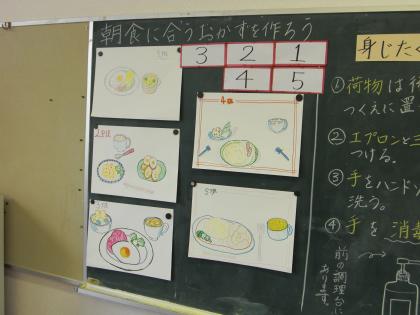 朝食に合うおかずを作ろう
3 2 1
4 5
1班
2班
3班
4班
5班
身じたく
①荷物は
つくえに置
②エプロンと三
つける。
③手をハンド
洗う。
④手を消毒
前の調理台に
あります。